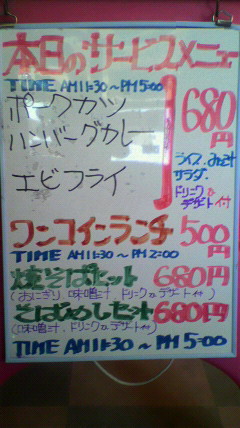 本日のサービスメニュー
TIME AM11:30～PM5:00
ポークカツ
ハンバーグカレー
エビフライ
680円
ライス、みそ汁
サラダ、
ドリンク&
デザート付
ワンコインランチ 500円
TIME AM11:30～PM2:00
焼そばセット 680円
(おにぎり、味噌汁、ドリンク&デザート付)
そばめしセット 680円
(味噌汁、ドリンク&デザート付)
TIME AM11:30～PM5:00